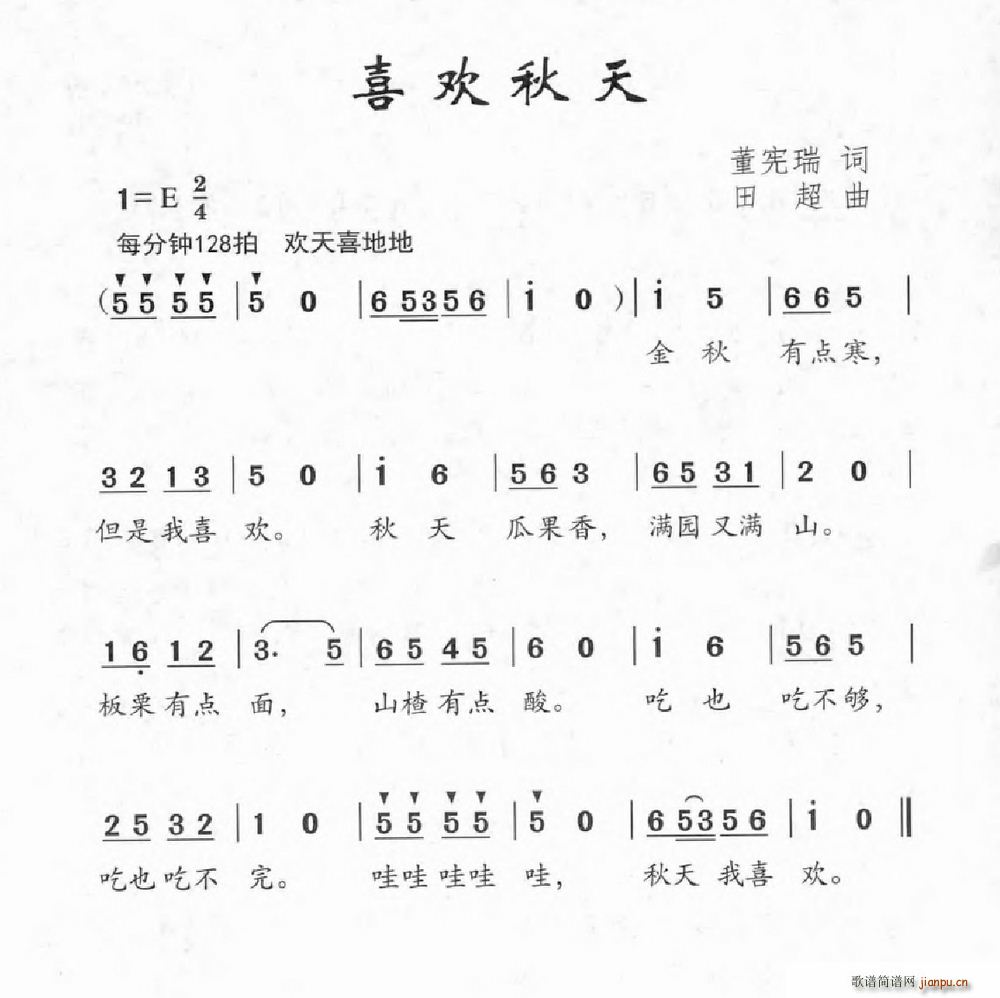 喜欢秋天
董宪瑞 词
田 超 曲
1=E 2/4
每分钟128拍 欢天喜地地
(5 5 5 5 | 5 0 | 6 5 3 5 6 | i 0 ) | i 5 | 6 6 5 |
金 秋 有点寒，
3 2 1 3 | 5 0 | i 6 | 5 6 3 | 6 5 3 1 | 2 0 |
但是我喜 欢。 秋 天 瓜果香， 满园又满 山。
1 6̣ 1 2 | 3. 5 | 6 5 4 5 | 6 0 | i 6 | 5 6 5 |
板栗有点 面， 山楂有点 酸。 吃 也 吃不够，
2 5 3 2 | 1 0 | 5 5 5 5 | 5 0 | 6 5 3 5 6 | i 0 ‖
吃也吃不 完。 哇哇哇哇 哇， 秋天我喜 欢。
歌谱简谱网 jianpu.cn